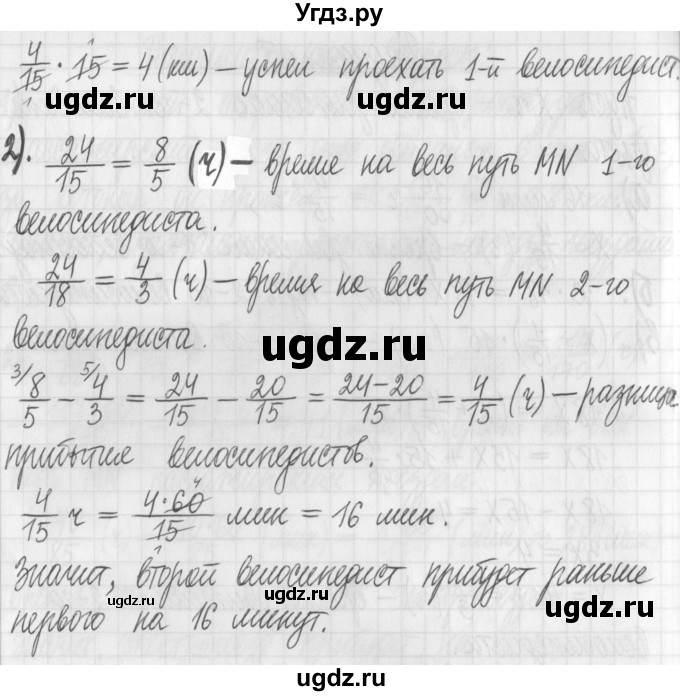 Угдз.ру
4/15 · 15 = 4 (км) – успел проехать 1-й велосипедист.
ugdz.ru ugdz.ru
2). 24/15 = 8/5 (ч) – время на весь путь MN 1-го
велосипедиста.
24/18 = 4/3 (ч) – время на весь путь MN 2-го
ugdz.ru ugdz.ru
велосипедиста.
3/ 8/5 – 5/ 4/3 = 24/15 – 20/15 = (24–20)/15 = 4/15 (ч) – разница
прибытие велосипедистов.
ugdz.ru ugdz.ru
4/15 ч = (4·60)/15 мин = 16 мин.
Значит, второй велосипедист прибудет раньше
ugdz.ru ugdz.ru
первого на 16 минут.
ugdz.ru ugdz.ru
Угдз.ру